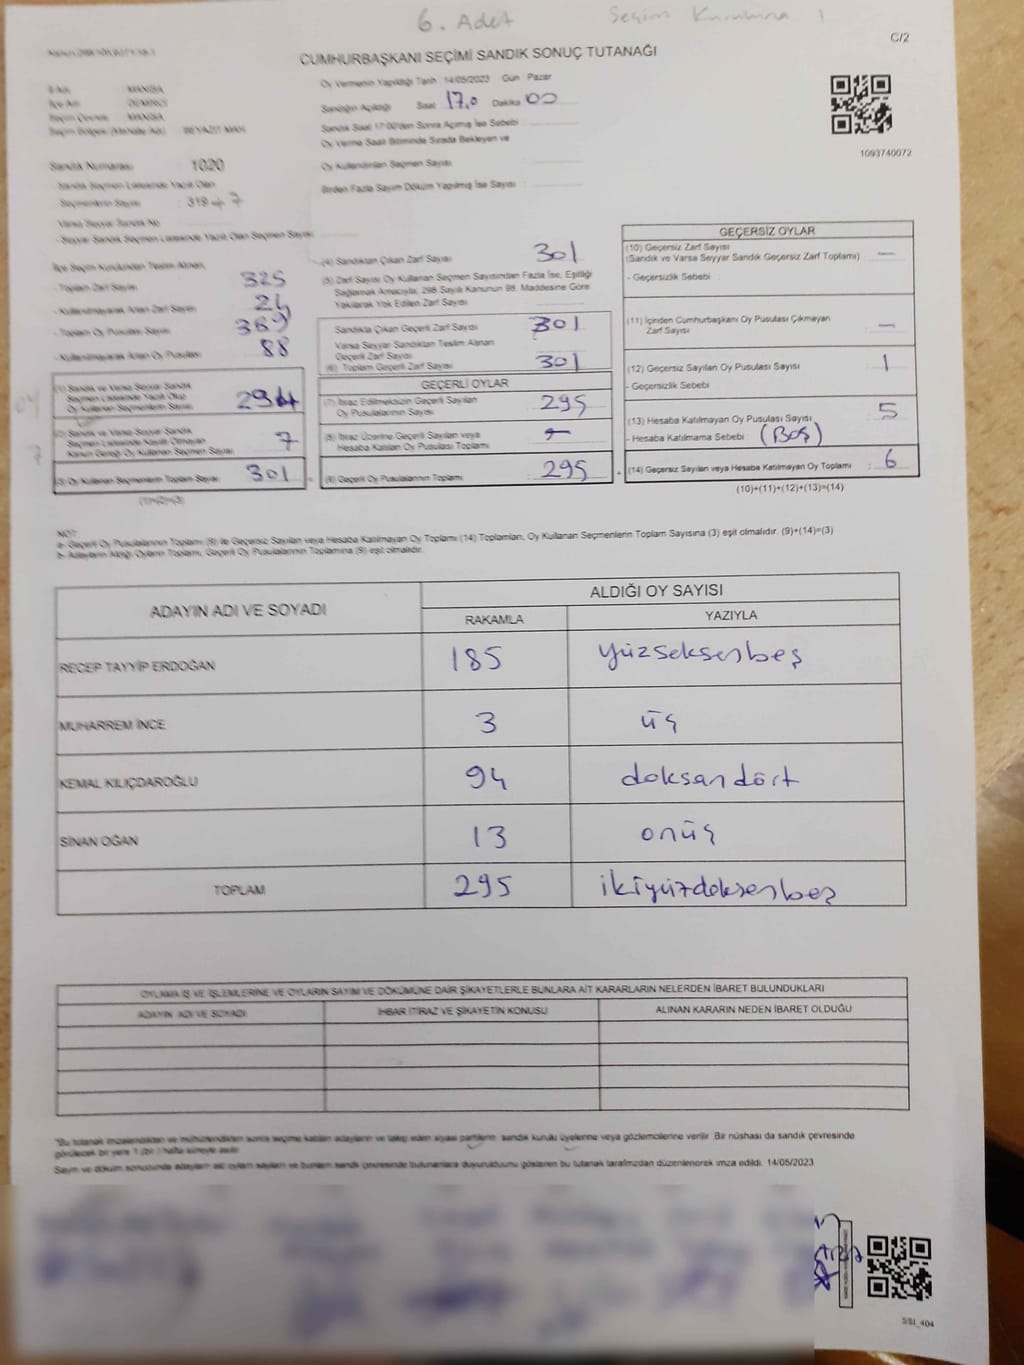 6. Adet Seçim Kuruluna 1
C/2
CUMHURBAŞKANI SEÇİMİ SANDIK SONUÇ TUTANAĞI
İl Adı : MANİSA
İlçe Adı : DEMİRCİ
Seçim Çevresi : MANİSA
Seçim Bölgesi (Mahalle Adı) : BEYAZIT MAH.
Sandık Numarası : 1020
Sandık Seçmen Listesinde Yazılı Olan
Seçmenlerin Sayısı : 318 + 7
Varsa Seyyar Sandık No
- Seyyar Sandık Seçmen Listesinde Yazılı Olan Seçmen Sayısı
Oy Vermenin Yapıldığı Tarih 14/05/2023 Gün Pazar
Sandığın Açıldığı Saat 17.0 Dakika 00
Sandık Saat 17:00'den Sonra Açılmış İse Sebebi :
Oy Verme Saati Bitiminde Sırada Bekleyen ve
Oy Kullandırılan Seçmen Sayısı :
Birden Fazla Sayım Döküm Yapılmış İse Sayısı :
1093740072
İlçe Seçim Kurulundan Teslim Alınan,
- Toplam Zarf Sayısı 325
- Kullanılmayarak Artan Zarf Sayısı 24
- Toplam Oy Pusulası Sayısı 389
- Kullanılmayarak Artan Oy Pusulası 88
(1) Sandık ve Varsa Seyyar Sandık
Seçmen Listesinde Yazılı Olup
Oy Kullanan Seçmenlerin Sayısı 294
(2) Sandık ve Varsa Seyyar Sandık
Seçmen Listesinde Kayıtlı Olmayan
Kanun Gereği Oy Kullanan Seçmen Sayısı 7
(3) Oy Kullanan Seçmenlerin Toplam Sayısı 301
(1)+(2)=(3)
(4) Sandıktan Çıkan Zarf Sayısı 301
(5) Zarf Sayısı Oy Kullanan Seçmen Sayısından Fazla İse, Eşitliği
Sağlamak Amacıyla, 298 Sayılı Kanunun 98. Maddesine Göre
Yakılarak Yok Edilen Zarf Sayısı
Sandıkta Çıkan Geçerli Zarf Sayısı 301
Varsa Seyyar Sandıktan Teslim Alınan
Geçerli Zarf Sayısı
(6) Toplam Geçerli Zarf Sayısı 301
GEÇERLİ OYLAR
(7) İtiraz Edilmeksizin Geçerli Sayılan
Oy Pusulalarının Sayısı 295
(8) İtiraz Üzerine Geçerli Sayılan veya
Hesaba Katılan Oy Pusulası Toplamı
(9) Geçerli Oy Pusulalarının Toplamı : 295
GEÇERSİZ OYLAR
(10) Geçersiz Zarf Sayısı
(Sandık ve Varsa Seyyar Sandık Geçersiz Zarf Toplamı) : —
- Geçersizlik Sebebi :
(11) İçinden Cumhurbaşkanı Oy Pusulası Çıkmayan
Zarf Sayısı : —
(12) Geçersiz Sayılan Oy Pusulası Sayısı : 1
- Geçersizlik Sebebi
(13) Hesaba Katılmayan Oy Pusulası Sayısı 5
- Hesaba Katılmama Sebebi (BOŞ)
(14) Geçersiz Sayılan veya Hesaba Katılmayan Oy Toplamı : 6
(10)+(11)+(12)+(13)=(14)
NOT:
a- Geçerli Oy Pusulalarının Toplamı (9) ile Geçersiz Sayılan veya Hesaba Katılmayan Oy Toplamı (14) Toplamları, Oy Kullanan Seçmenlerin Toplam Sayısına (3) eşit olmalıdır. (9)+(14)=(3)
b- Adayların Aldığı Oyların Toplamı, Geçerli Oy Pusulalarının Toplamına (9) eşit olmalıdır.
ADAYIN ADI VE SOYADI ALDIĞI OY SAYISI
RAKAMLA YAZIYLA
RECEP TAYYİP ERDOĞAN 185 yüzseksenbeş
MUHARREM İNCE 3 üç
KEMAL KILIÇDAROĞLU 94 doksandört
SİNAN OĞAN 13 onüç
TOPLAM 295 ikiyüzdoksenbeş
OYLAMA İŞ VE İŞLEMLERİNE VE OYLARIN SAYIM VE DÖKÜMÜNE DAİR ŞİKAYETLERLE BUNLARA AİT KARARLARIN NELERDEN İBARET BULUNDUKLARI
ADAYIN ADI VE SOYADI İHBAR İTİRAZ VE ŞİKAYETİN KONUSU ALINAN KARARIN NEDEN İBARET OLDUĞU
"Bu tutanak imzalandıktan ve mühürlendikten sonra seçime katılan adayların ve takip eden siyasi partilerin sandık kurulu üyelerine veya gözlemcilerine verilir. Bir nüshası da sandık çevresinde
görülecek bir yere 1 (bir) hafta süreyle asılır.
Sayım ve döküm sonucunda adayların aldığı oyların sayıları ve bunların sandık çevresinde bulunanlara duyurulduğunu gösteren bu tutanak tarafımızdan düzenlenerek imza edildi. 14/05/2023
SSI_404